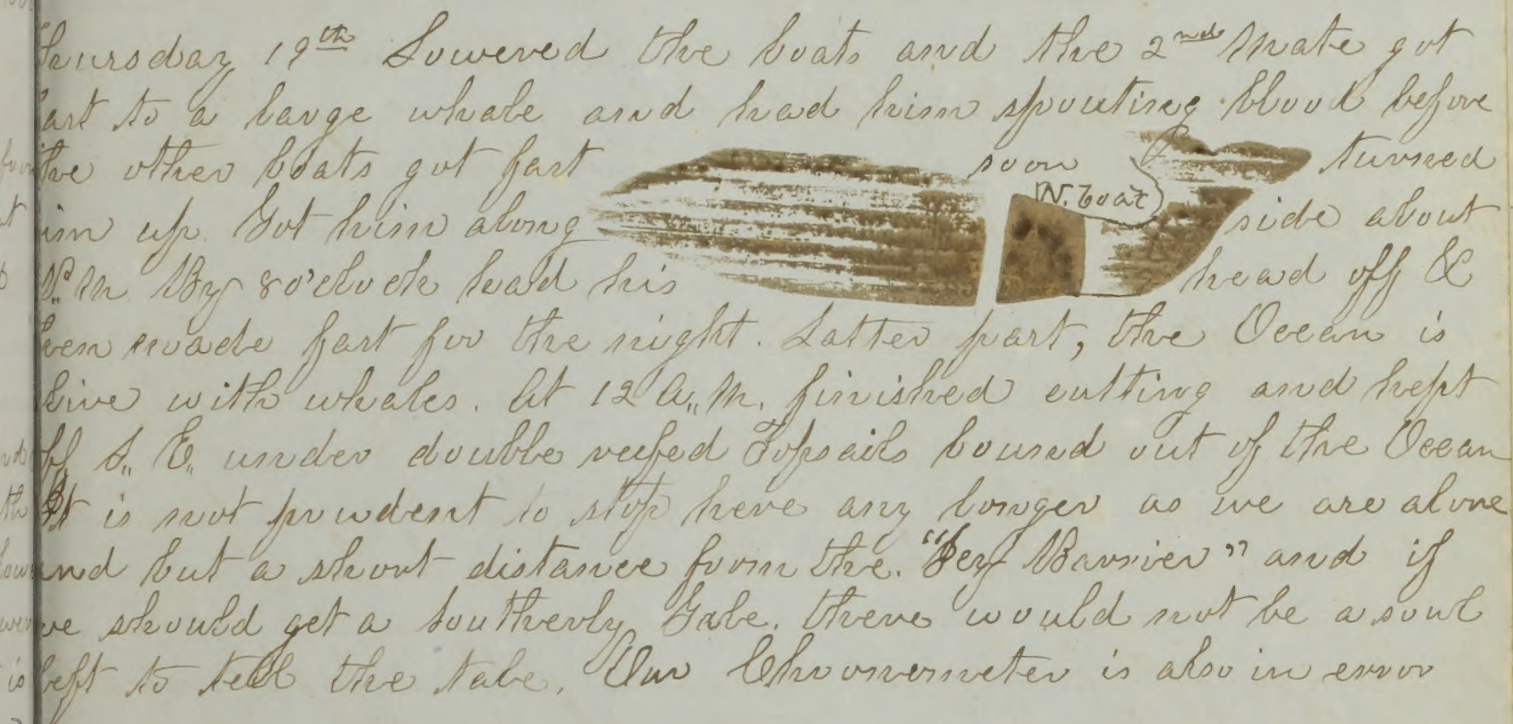 Thursday 19th Lowered the boats and the 2nd Mate got
fast to a large whale and had him spouting blood before
the other boats got fast soon turned
W. boat
him up. Got him along side about
P.M By 8 o'clock had his head off &
then made fast for the night. Latter part, the Ocean is
alive with whales. At 12 A.,M. finished cutting and kept
off S.,, E.,, under double reefed Topsails bound out of the Ocean
It is not prudent to stop here any longer as we are alone
and but a short distance from the. "Icy Barrier" and if
we should get a Southerly Gale. there would not be a soul
left to tell the tale. Our Chronometer is also in error